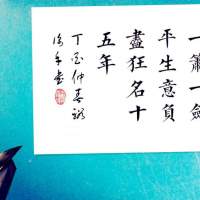 一簫一劍
平生意負
盡狂名十
五年
丁酉仲春